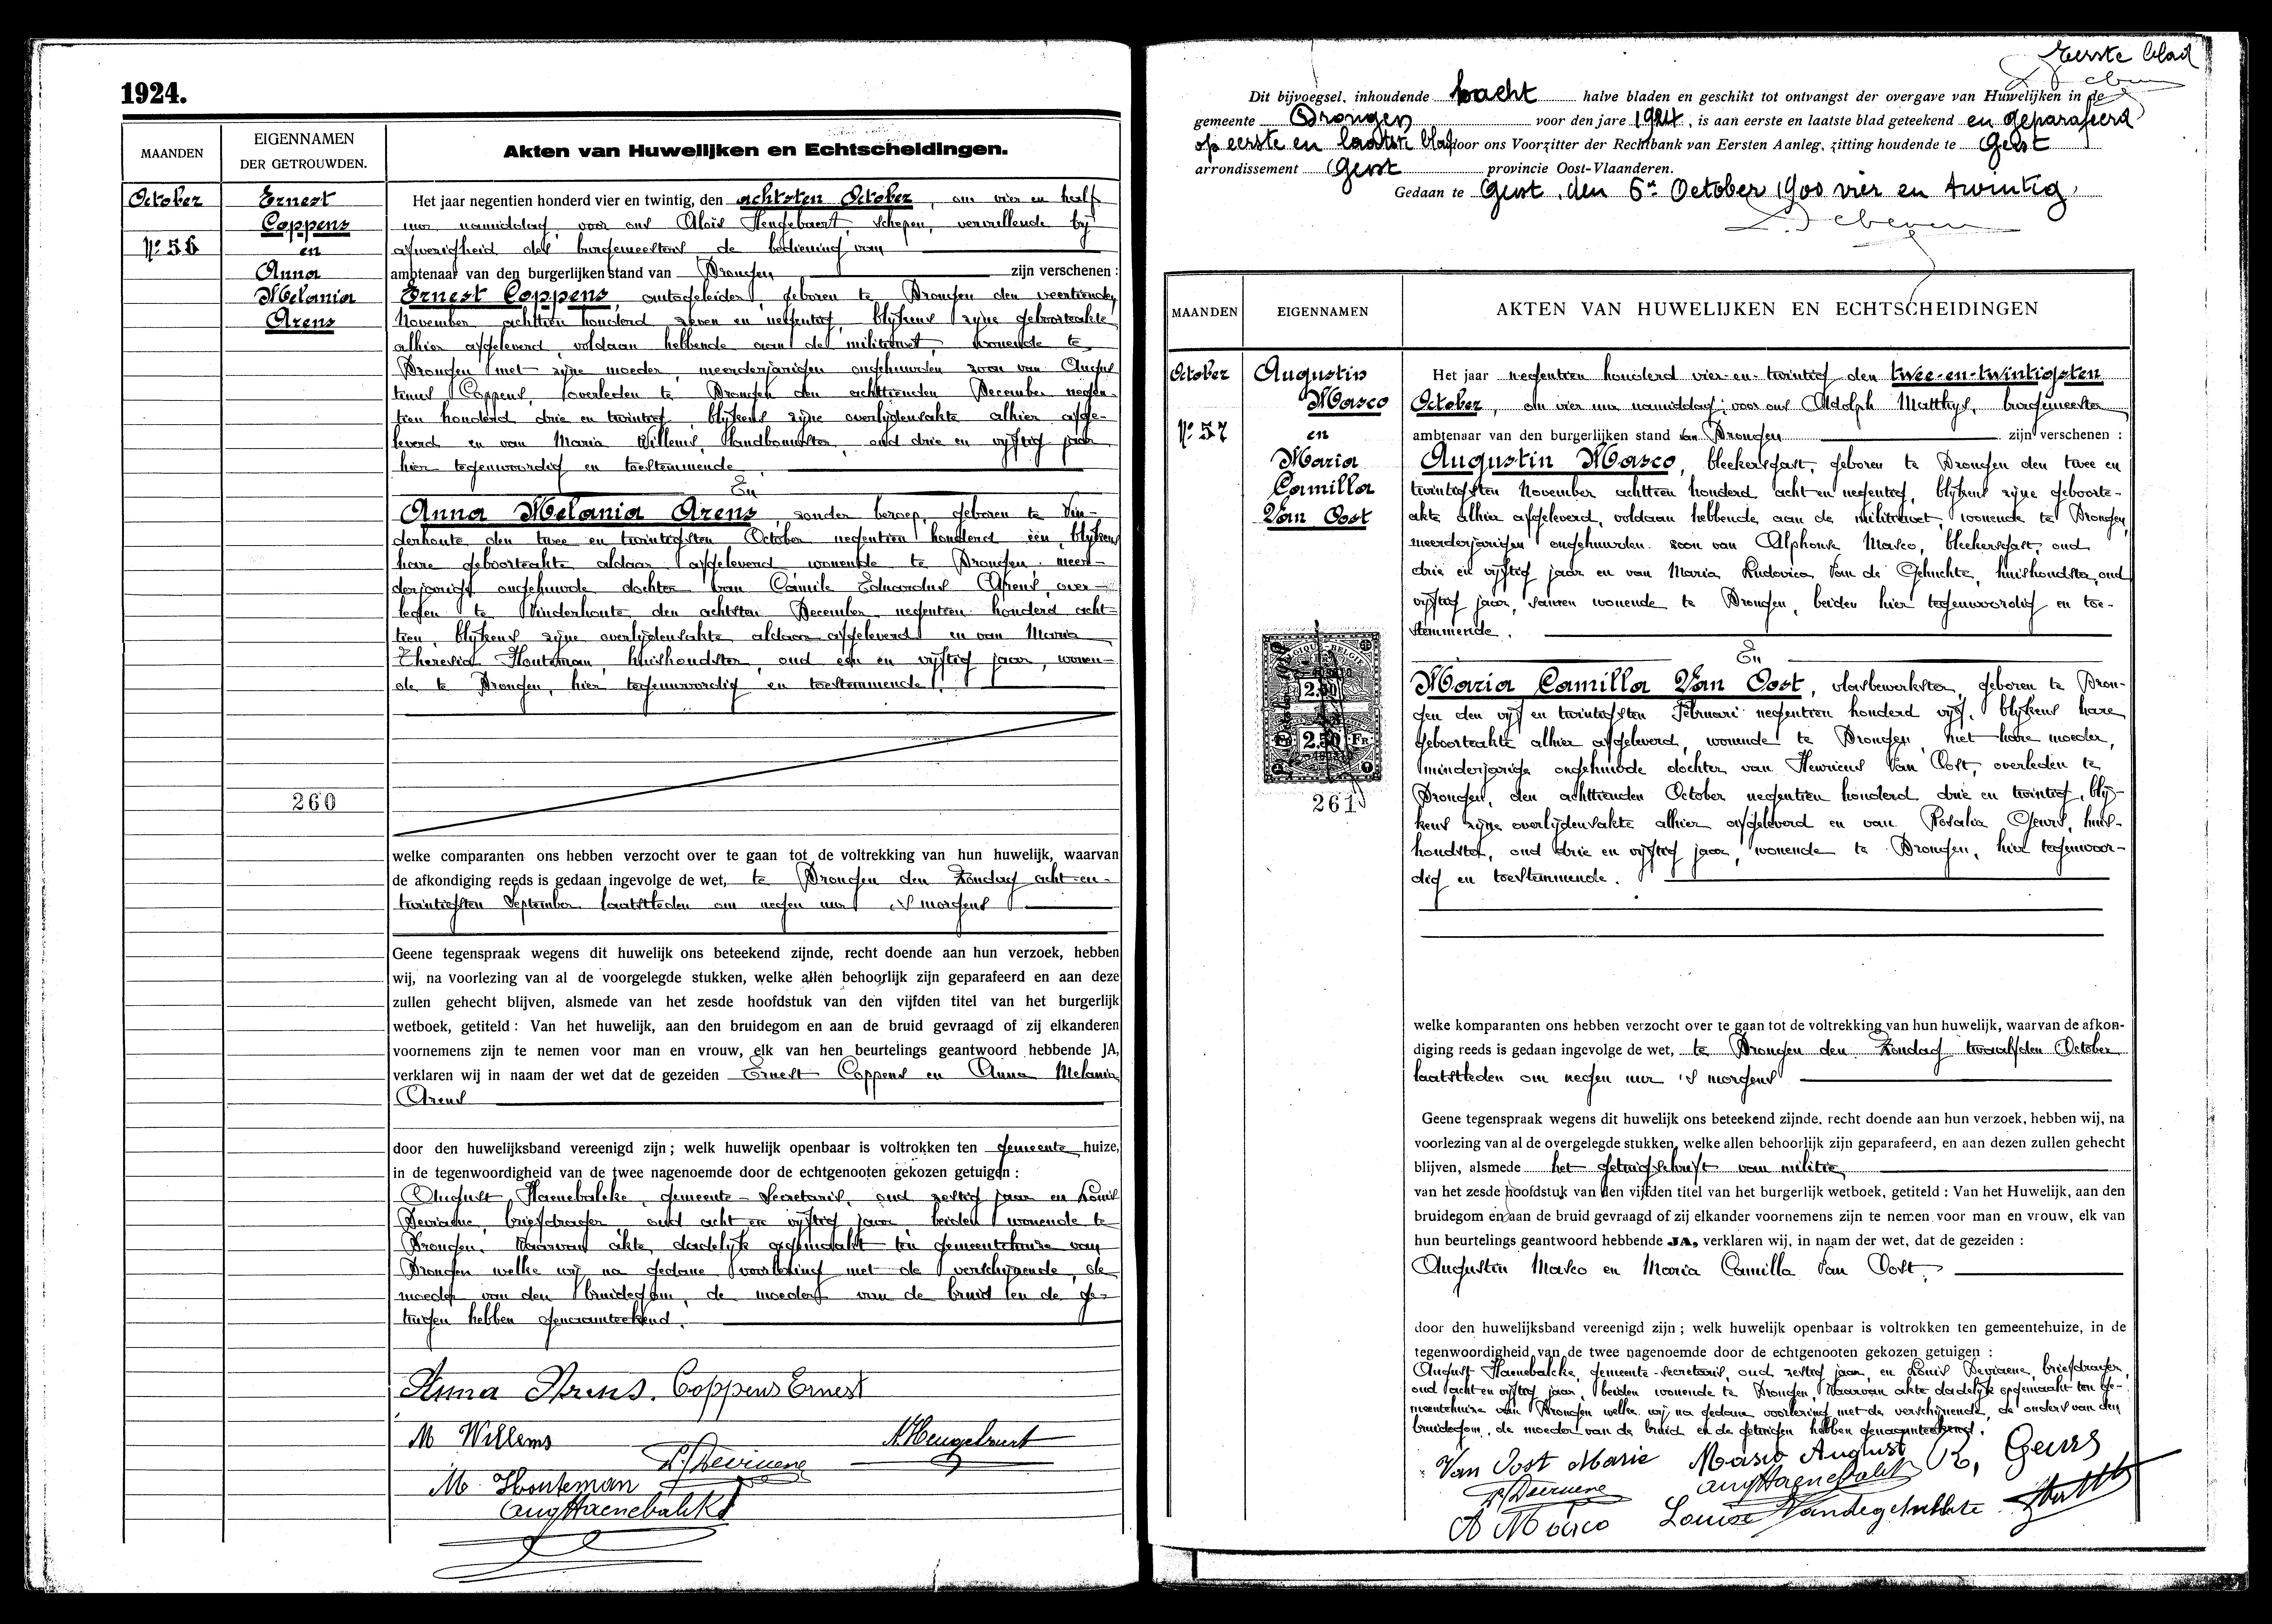 1924.
MAANDEN
EIGENNAMEN
DER GETROUWDEN.
Akten van Huwelijken en Echtscheidingen.
October
Nº 56
Ernest
Coppens
en
Anna
Melania
Arens
260
Het jaar negentien honderd vier en twintig, den achtsten October, om vier en half
uur namiddag, voor ons Aloïs Hengebaert, schepen, vervullende bij
afwezigheid des burgemeesters de bediening van
ambtenaar van den burgerlijken stand van Drongen zijn verschenen :
Ernest Coppens, autogeleider, geboren te Drongen den veertienden
November achttien honderd zeven en negentig, blijkens zijne geboorteakte
alhier afgeleverd, voldaan hebbende aan de militiewet, wonende te
Drongen met zijne moeder, meerderjarigen ongehuwden zoon van Augus
tinus Coppens, overleden te Drongen den achttienden December negen-
tien honderd drie en twintig, blijkens zijne overlijdensakte alhier afge-
leverd en van Maria Willems, landbouwster, oud drie en vijftig jaar
hier tegenwoordig en toestemmende
En
Anna Melania Arens, zonder beroep, geboren te Vin-
derhoute den twee en twintigsten October negentien honderd één, blijkens
hare geboorteakte aldaar afgeleverd wonende te Drongen, meer-
derjarige ongehuwde dochter van Camile Eduardus Arens, over-
leden te Vinderhoute den achtsten December negentien honderd acht-
tien, blijkens zijne overlijdensakte aldaar afgeleverd en van Maria
Theresia Houteman, huishoudster, oud een en vijftig jaar, wonen-
de te Drongen, hier tegenwoordig en toestemmende.
welke comparanten ons hebben verzocht over te gaan tot de voltrekking van hun huwelijk, waarvan
de afkondiging reeds is gedaan ingevolge de wet, te Drongen den Zondag acht-en-
twintigsten September laatstleden om negen uur 's morgens
Geene tegenspraak wegens dit huwelijk ons beteekend zijnde, recht doende aan hun verzoek, hebben
wij, na voorlezing van al de voorgelegde stukken, welke allen behoorlijk zijn geparafeerd en aan deze
zullen gehecht blijven, alsmede van het zesde hoofdstuk van den vijfden titel van het burgerlijk
wetboek, getiteld : Van het huwelijk, aan den bruidegom en aan de bruid gevraagd of zij elkanderen
voornemens zijn te nemen voor man en vrouw, elk van hen beurtelings geantwoord hebbende JA,
verklaren wij in naam der wet dat de gezeiden Ernest Coppens en Anna Melania
Arens
door den huwelijksband vereenigd zijn ; welk huwelijk openbaar is voltrokken ten gemeente huize,
in de tegenwoordigheid van de twee nagenoemde door de echtgenooten gekozen getuigen :
August Haenebalcke, gemeente-secretaris, oud zestig jaar en Louis
Deviaene, briefdrager, oud acht en vijftig jaar, beiden wonende te
Drongen. Waarvan akte, dadelijk opgemaakt ten gemeentehuize van
Drongen welke wij na gedane voorlezing met de verschijnende, de
moeder van den bruidegom, de moeder van de bruid en de ge-
tuigen hebben genaamteekend.
Anna Arens. Coppens Ernest
M Willems
A. Hengebaert
L. Deviaene
M. Houteman
Aug Haenebalcke
Eerste blad
Dit bijvoegsel, inhoudende acht halve bladen en geschikt tot ontvangst der overgave van Huwelijken in de
gemeente Drongen voor den jare 1924, is aan eerste en laatste blad geteekend en geparafeerd
op eerste en laatste blad door ons Voorzitter der Rechtbank van Eersten Aanleg, zitting houdende te Gent
arrondissement Gent provincie Oost-Vlaanderen.
Gedaan te Gent, den 6en October 1900 vier en twintig,
MAANDEN
EIGENNAMEN
AKTEN VAN HUWELIJKEN EN ECHTSCHEIDINGEN
October
Nº 57
Augustin
Masco
en
Maria
Camilla
Van Oost
BELGIQUE-BELGIE
2.50
2.50
FR
261
Het jaar negentien honderd vier-en-twintig den twee-en-twintigsten
October, om vier uur namiddag, voor ons Adolph Matthys, burgemeester
ambtenaar van den burgerlijken stand van Drongen zijn verschenen :
Augustin Masco, bleekersgast, geboren te Drongen den twee en
twintigsten November achttien honderd acht en negentig, blijkens zijne geboorte-
akte alhier afgeleverd, voldaan hebbende aan de militiewet, wonende te Drongen,
meerderjarigen ongehuwden zoon van Alphonse Masco, bleekersgast, oud
drie en vijftig jaar en van Maria Ludovica Van de Gehuchte, huishoudster, oud
vijftig jaar, samen wonende te Drongen, beiden hier tegenwoordig en toe-
stemmende.
En
Maria Camilla Van Oost, vlasbewerkster, geboren te Dron-
gen den vijf en twintigsten Februari negentien honderd vijf, blijkens hare
geboorteakte alhier afgeleverd, wonende te Drongen met hare moeder,
minderjarige ongehuwde dochter van Henricus Van Oost, overleden te
Drongen, den achttienden October negentien honderd drie en twintig, blij-
kens zijne overlijdensakte alhier afgeleverd en van Rosalia Geurs, huis-
houdster, oud drie en vijftig jaar, wonende te Drongen, hier tegenwoor-
dig en toestemmende.
welke komparanten ons hebben verzocht over te gaan tot de voltrekking van hun huwelijk, waarvan de afkon-
diging reeds is gedaan ingevolge de wet, te Drongen den Zondag twaalfden October
laatstleden om negen uur 's morgens
Geene tegenspraak wegens dit huwelijk ons beteekend zijnde, recht doende aan hun verzoek, hebben wij, na
voorlezing van al de overgelegde stukken, welke allen behoorlijk zijn geparafeerd, en aan dezen zullen gehecht
blijven, alsmede het getuigschrift van militie
van het zesde hoofdstuk van den vijfden titel van het burgerlijk wetboek, getiteld : Van het Huwelijk, aan den
bruidegom en aan de bruid gevraagd of zij elkander voornemens zijn te nemen voor man en vrouw, elk van
hun beurtelings geantwoord hebbende JA, verklaren wij, in naam der wet, dat de gezeiden :
Augustin Masco en Maria Camilla Van Oost,
door den huwelijksband vereenigd zijn ; welk huwelijk openbaar is voltrokken ten gemeentehuize, in de
tegenwoordigheid van de twee nagenoemde door de echtgenooten gekozen getuigen :
August Haenebalcke, gemeente-secretaris, oud zestig jaar, en Louis Deviaene, briefdrager,
oud acht en vijftig jaar, beiden wonende te Drongen, Waarvan akte dadelijk opgemaakt ten ge-
meentehuize van Drongen welke wij na gedane voorlezing met de verschijnende, de ouders van den
bruidegom, de moeder van de bruid en de getuigen hebben genaamteekend.
Van Oost Marie Masco August R, Geurs
L. Deviaene Aug Haenebalcke
A Masco Louise Vandegehuchte